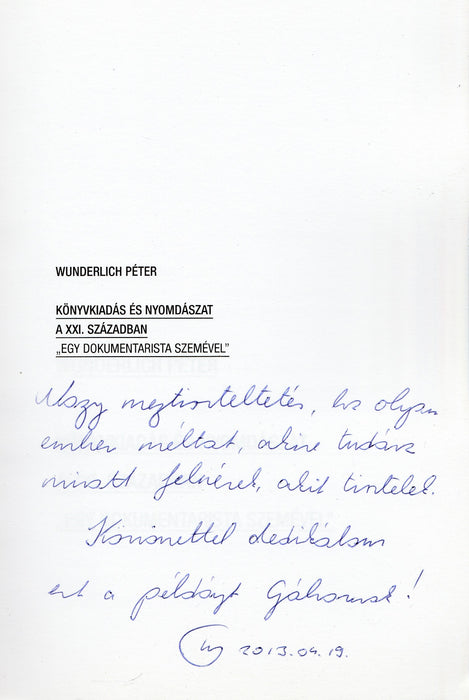 WUNDERLICH PÉTER
KÖNYVKIADÁS ÉS NYOMDÁSZAT
A XXI. SZÁZADBAN
„EGY DOKUMENTARISTA SZEMÉVEL”
Nagy megtiszteltetés, ha olyan
ember méltat, akire tudása
miatt felnézek, akit tisztelek.
Köszönettel dedikálom
ezt a példányt
2013.04.19.